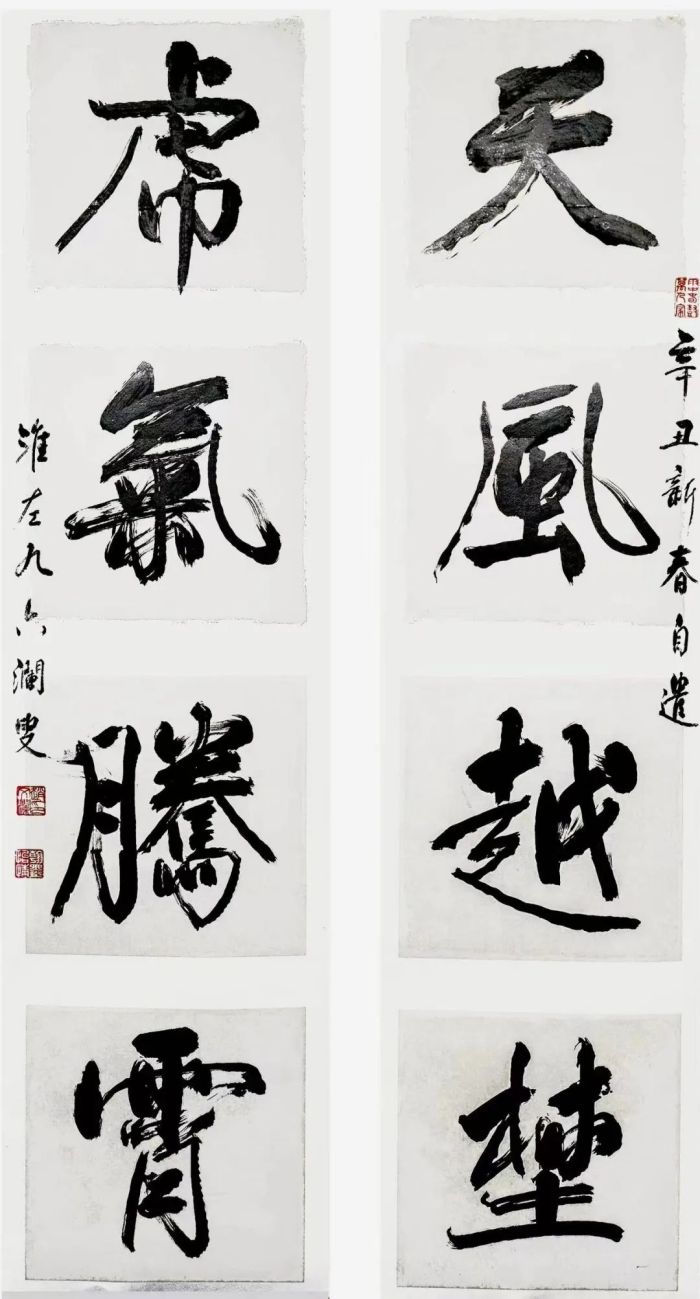 辛丑新春自遣
天風越埜
虎氣騰霄
淮左九六瀾叟